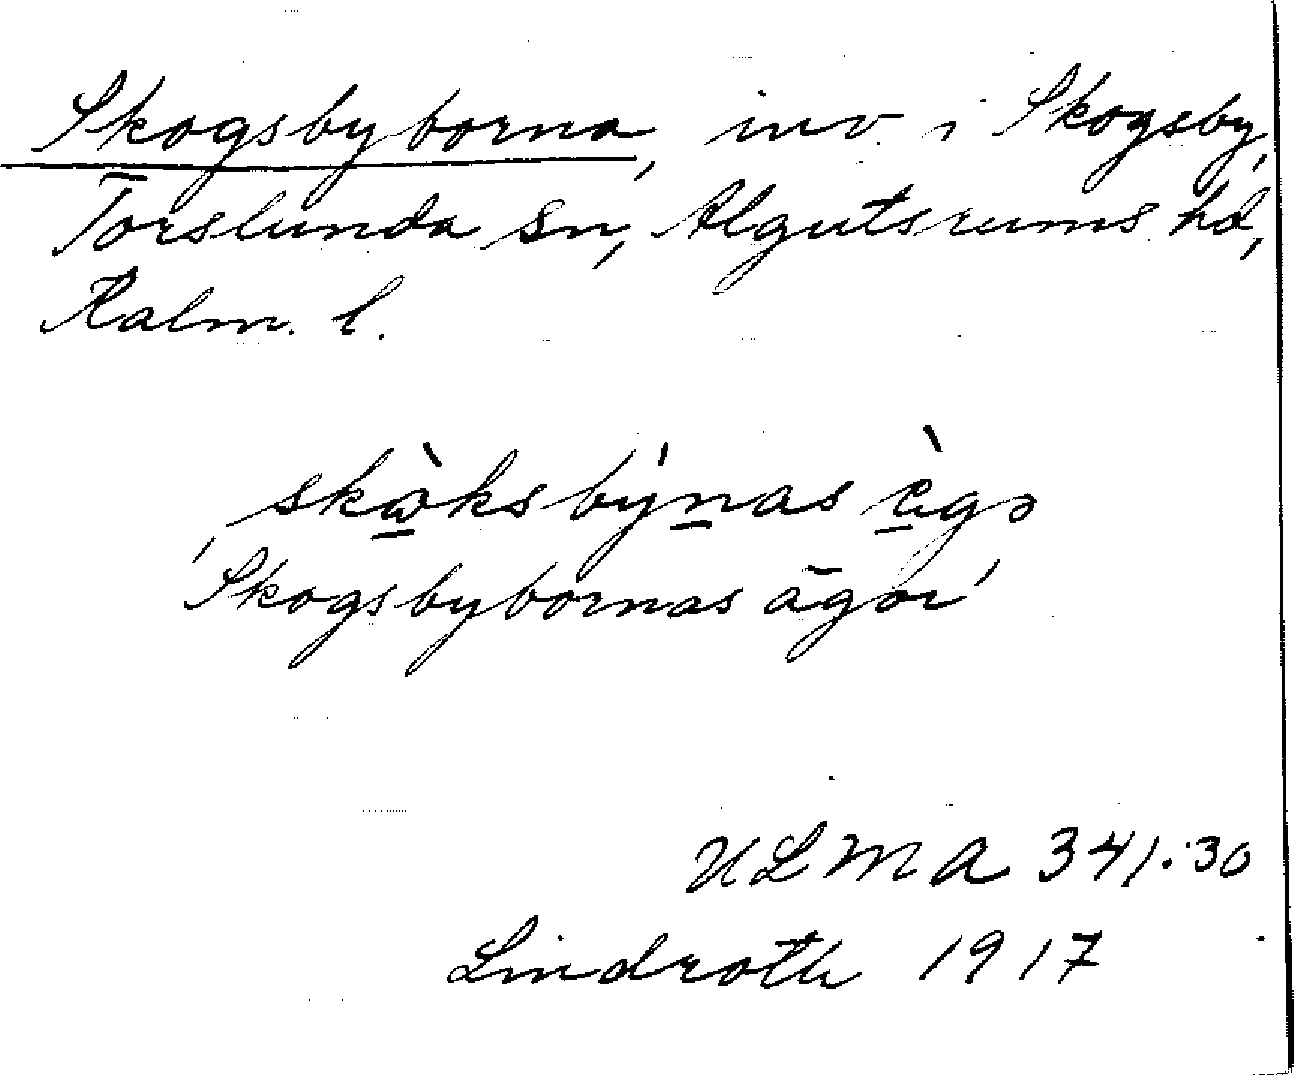 Skogsbyborna, inv. i Skogsby,
Torslunda sn, Algutsrums hd,
Kalm. l.
skὼksbýnas ὲgɔ
'Skogsbybornas ägor'
ULMA 341:30
Lindroth 1917